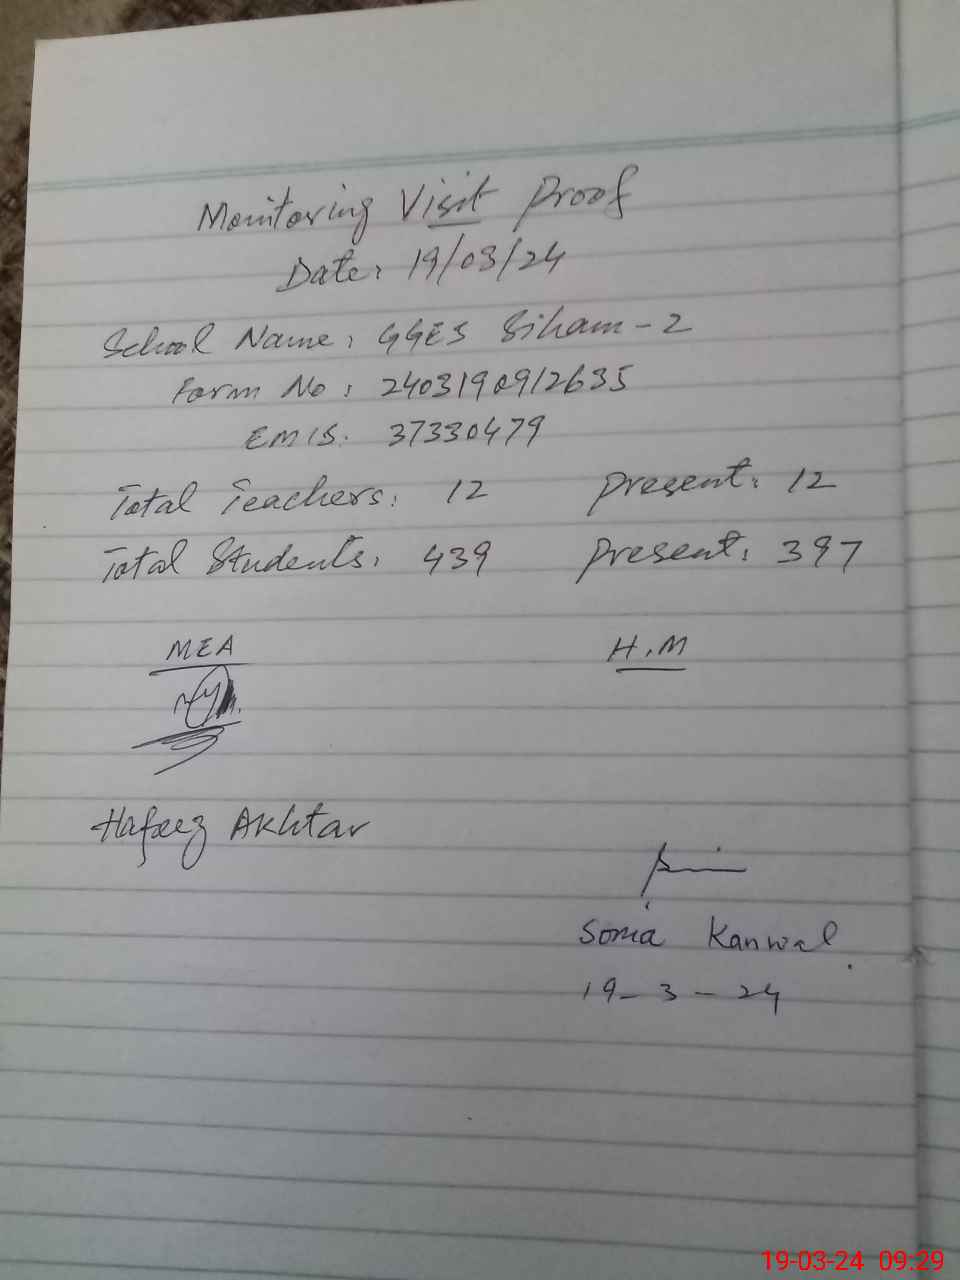 Monitoring Visit Proof
Date: 19/03/24
School Name: GGES Siham-2
Form No: 2403190912635
EMIS. 37330479
Total Teachers: 12 Present: 12
Total Students: 439 Present: 397
MEA H.M
Hafeez Akhtar
Sonia Kanwal
19-3-24
19-03-24 09:29